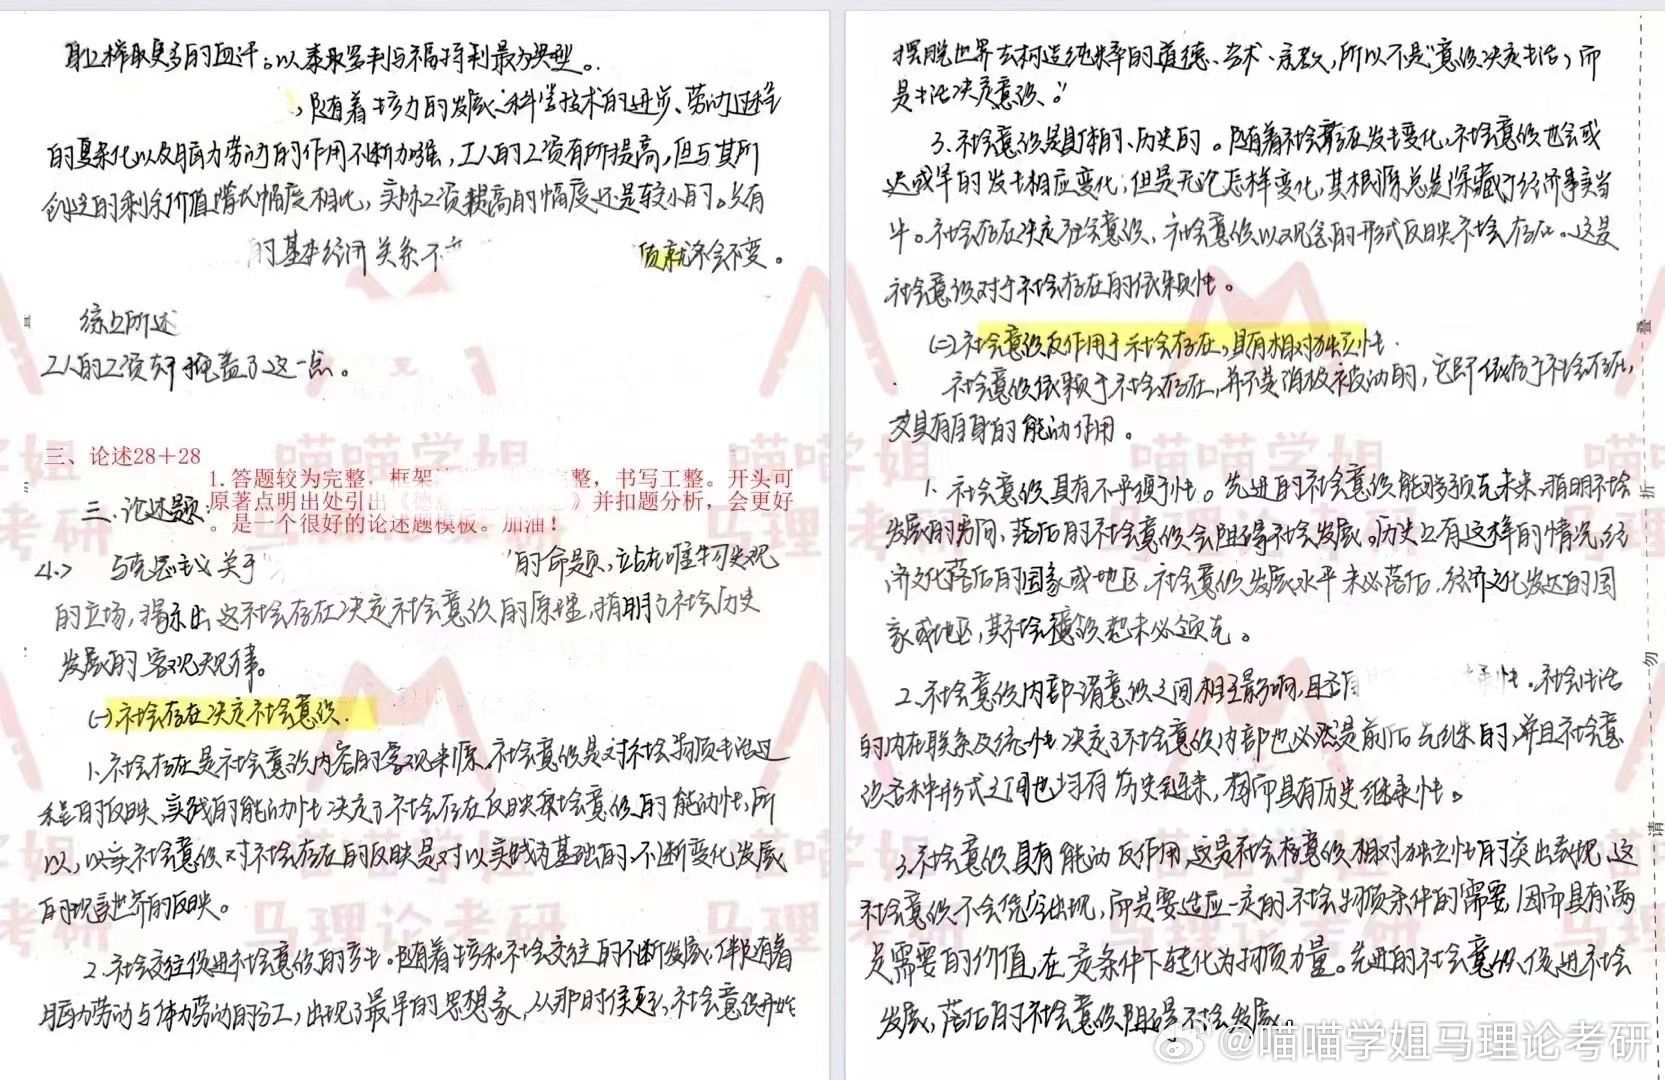 身上榨取更多的血汗。以泰罗制与福特制最为典型。
,随着生产力的发展、科学技术的进步、劳动过程
的复杂化以及脑力劳动的作用不断加强,工人的工资有所提高,但与其所
创造的剩余价值增长幅度相比,实际工资提高的幅度还是较小的。只有
的基本经济关系不变 质就不会不变。
综上所述
工人的工资 掩盖了这一点。
三、论述28+28
1.答题较为完整,框架 完整,书写工整。开头可
原著点明出处引出《德 》并扣题分析,会更好
。是一个很好的论述题模板。加油!
三、论述题:
4.> 马克思主义关于“ ”的命题,站在唯物史观
的立场,揭示出这社会存在决定社会意识的原理,指明了社会历史
发展的客观规律。
(一)社会存在决定社会意识.
1.社会存在是社会意识内容的客观来源,社会意识是对社会物质生活过
程的反映,实践的能动性决定了社会存在反映社会意识的能动性,所
以,社会意识对社会存在的反映是对以实践为基础的、不断变化发展
的现实世界的反映。
2.社会交往促进社会意识的产生。随着生产和社会交往的不断发展,伴随着
脑力劳动与体力劳动的分工,出现了最早的思想家,从那时候起,社会意识开始
摆脱世界去构造纯粹的道德、艺术、宗教,所以不是“意识决定生活,而
是生活决定意识。”
3.社会意识是具体的、历史的。随着社会存在发生变化,社会意识也会或
迟或早的发生相应变化,但是无论怎样变化,其根源总是深藏于经济事实当
中。社会存在决定社会意识,社会意识以观念的形式反映社会存在。这是
社会意识对于社会存在的依赖性。
(二)社会意识反作用于社会存在,具有相对独立性.
社会意识依赖于社会存在,并不是消极被动的,它即依存于社会存在,
又具有自身的能动作用。
1.社会意识具有不平衡性。先进的社会意识能够预见未来,指明社会
发展的方向,落后的社会意识会阻碍社会发展。历史上有这样的情况,经
济文化落后的国家或地区,社会意识发展水平未必落后,经济文化发达的国
家或地区,其社会意识也未必领先。
2.社会意识内部诸意识之间相互影响,且还有 性。社会生活
的内在联系及统一性决定了社会意识内部也必然是前后先继来的,并且社会意
识各种形式之间也均有历史继承,因而具有历史继承性。
3.社会意识具有能动反作用,这是社会意识相对独立性的突出表现。这
社会意识不会凭空出现,而是要适应一定的社会物质条件的需要,因而具有满
足需要的价值,在一定条件下转化为物质力量。先进的社会意识促进社会
发展,落后的社会意识阻碍社会发展。
叠
折
勿
请
喵喵学姐
马理论考研
@喵喵学姐马理论考研